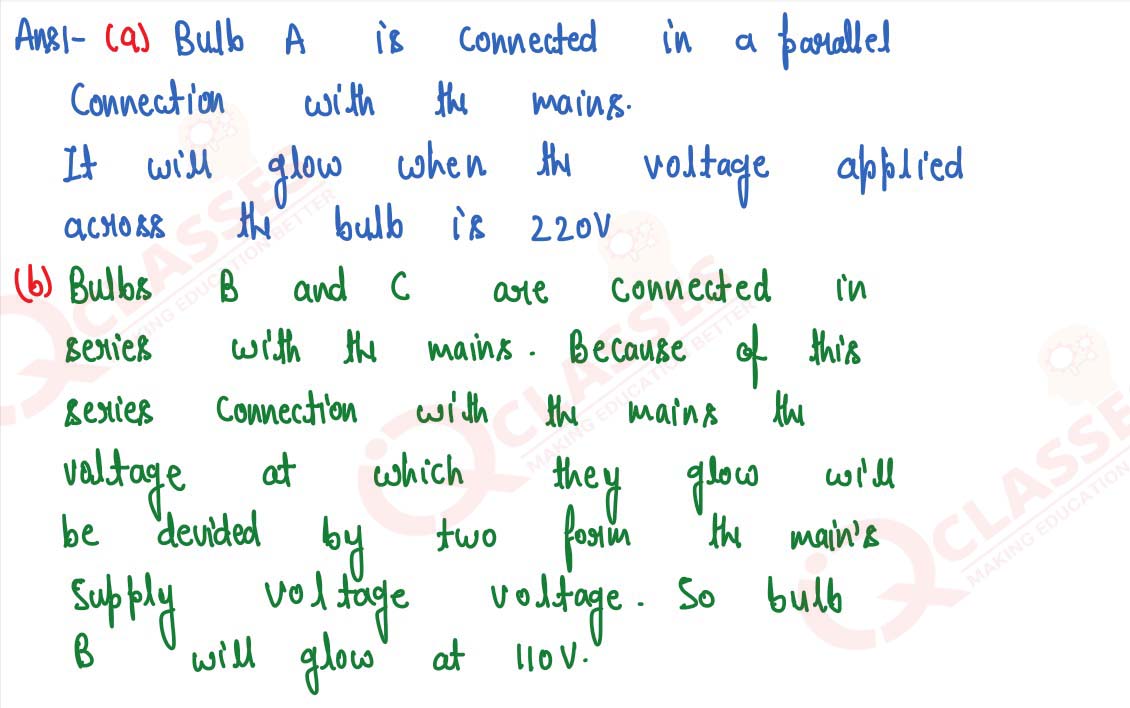 Ans1- (a) Bulb A is connected in a parallel
Connection with the mains.
It will glow when the voltage applied
across the bulb is 220V
(b) Bulbs B and C are connected in
series with the mains. Because of this
series Connection with the mains the
voltage at which they glow will
be devided by two form the main's
Supply voltage voltage. So bulb
B will glow at 110V.
IQ CLASSES
MAKING EDUCATION BETTER
IQ CLASSES
MAKING EDUCATION BETTER
IQ CLASSES
MAKING EDUCATION